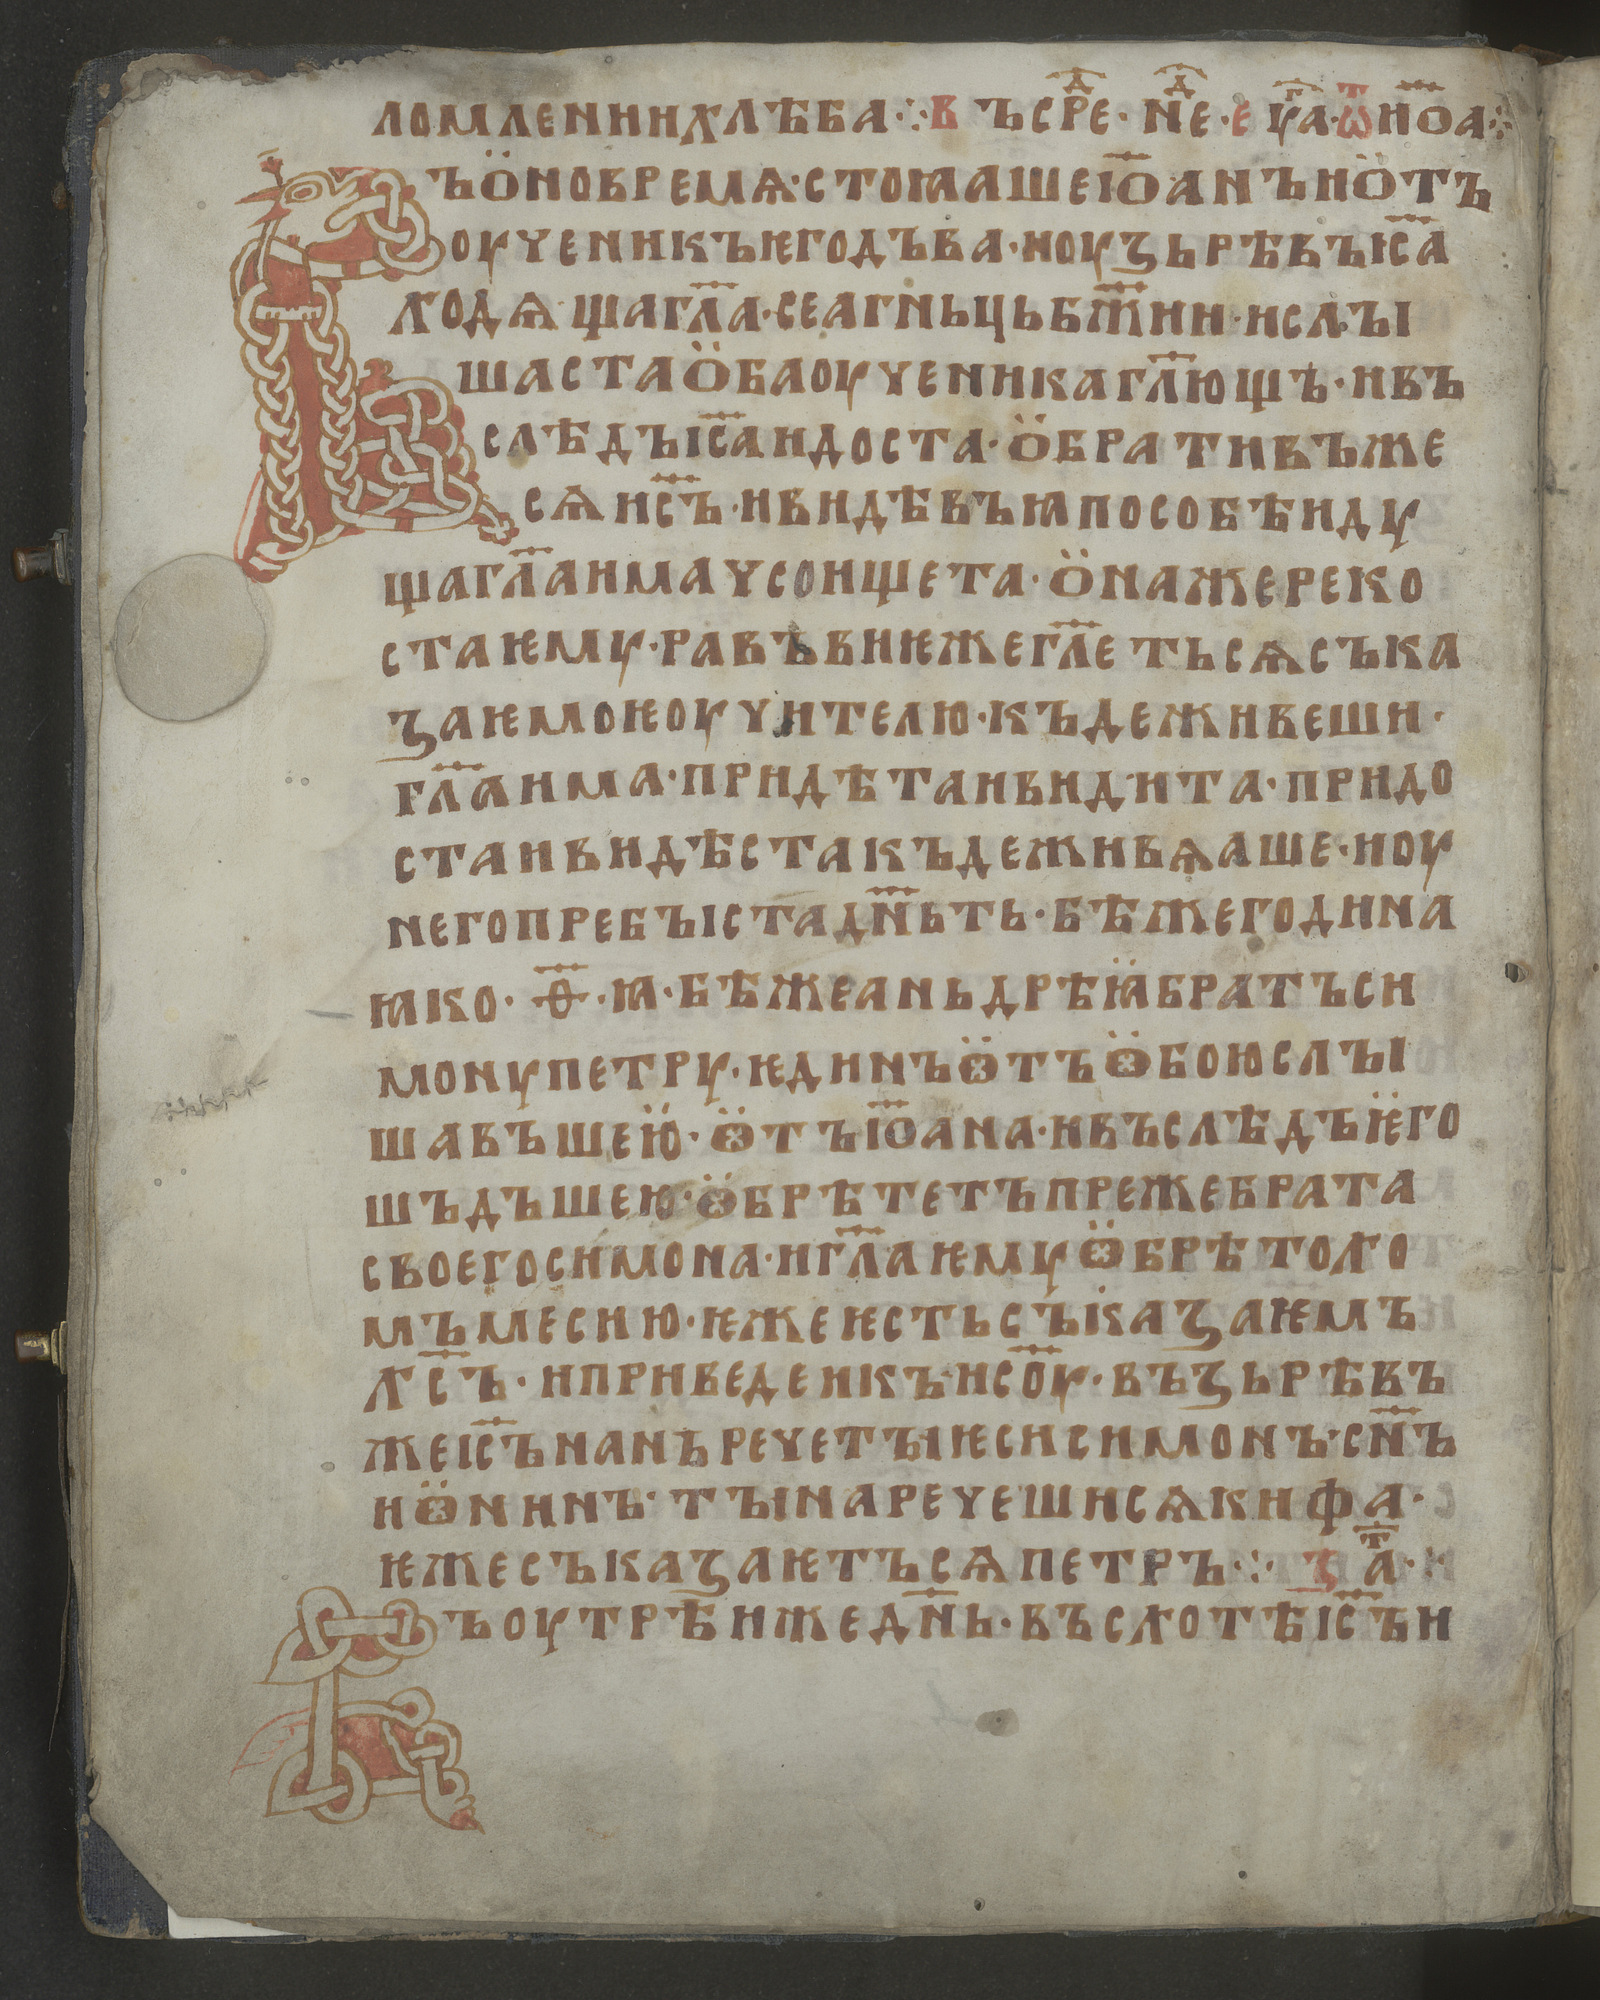 ломлениихлѣба⁘въсрⷣе·нⷣе·е·єуⷢ҇а·ѿио҃а⁘
Въӧновремѧ·стоꙗашеіо҃анъиӧтъ
оученикъѥгодъва·ноуꙁьрѣвъіс҃а
ходѧщагл҃а·сеагньцьбж҃ии·ислꙑ
шастаӧбаоученикагл҃ющь·ивъ
слѣдъіс҃аидоста·ӧбративъже
сѧис҃ъ·ивидѣвъꙗпособѣиду
щагл҃аимачсоищета·ӧнажереко
стаѥму·равъвиѥжегл҃етьсѧсъка
ꙁаѥмоѥоучителю·къдеживеши·
гл҃аима·придѣтаивидита·придо
стаивидѣстакъдеживѧаше·ноу
негопребꙑстадн҃ьть·бѣжегодина
ꙗко·ѳ҃·ꙗ·бѣжеаньдрѣꙗбратъси
монупетру·ѥдинъꙫтъꙫбоюслꙑ
шавъшею·ꙫтъіо҃ана·ивъслѣдъѥго
шъдъшею·ꙫбрѣтетъпрежебрата
своегосимона·игл҃аѥмуꙫбрѣтохо
мъмесию·ѥжеѥстьсъікаꙁаѥмъ
хс҃ъ·иприведеикъис҃оу·въꙁьрѣвъ
жеіс҃ънанъречетꙑѥсисимонъ·сн҃ъ
иꙫнинъ·тꙑнаречешисѧкифа·
ѥжесъкаꙁаѥтъсѧпетръ⁘ꙁаⷮ·
Въоутрѣижедн҃ь·въсхотѣіс҃ъи